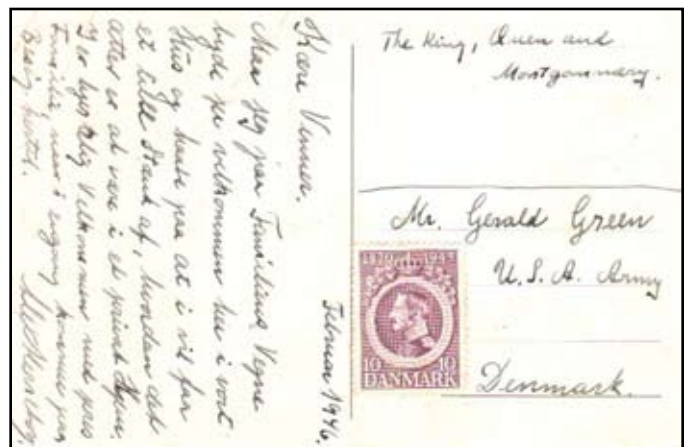 The King, Queen and
Montgommary.
Mr. Gerald Green
U.S.A. Army
Denmark.
1870 1945
10 10
DANMARK
Februar 1946.
Kære Venner.
Maa jeg paa Familiens Vegne
byde jer velkommen her i vort
Hus og haabe paa at i vil faa
et lille Stænk af, hvordan det
atter er at være i et privat Hjem.
I er hjertelig Velkommen med jeres
Familie, naar i engang kommer paa